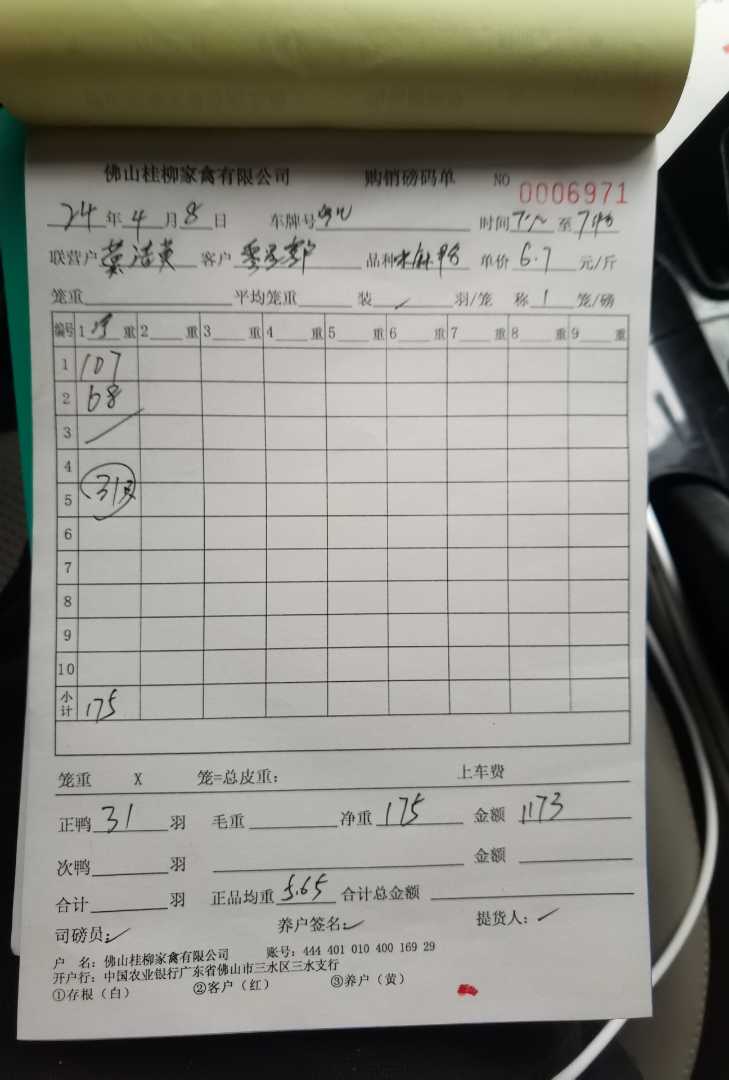 佛山桂柳家禽有限公司 购销磅码单 NO 0006971
24年4月8日 车牌号 时间 至
联营户 客户 品种 单价6.7元/斤
笼重 平均笼重 装 羽/笼 称1笼/磅
编号 1净重 2重 3重 4重 5重 6重 7重 8重 9重
1 107
2 68
3
4
5 31
6
7
8
9
10
小计 175
笼重 X 笼=总皮重: 上车费
正鸭31羽 毛重 净重175 金额1173
次鸭 羽 金额
合计 羽 正品均重5.65 合计总金额
司磅员: 养户签名: 提货人:
户 名: 佛山桂柳家禽有限公司 账号: 444 401 010 400 169 29
开户行: 中国农业银行广东省佛山市三水区三水支行
①存根(白) ②客户(红) ③养户(黄)